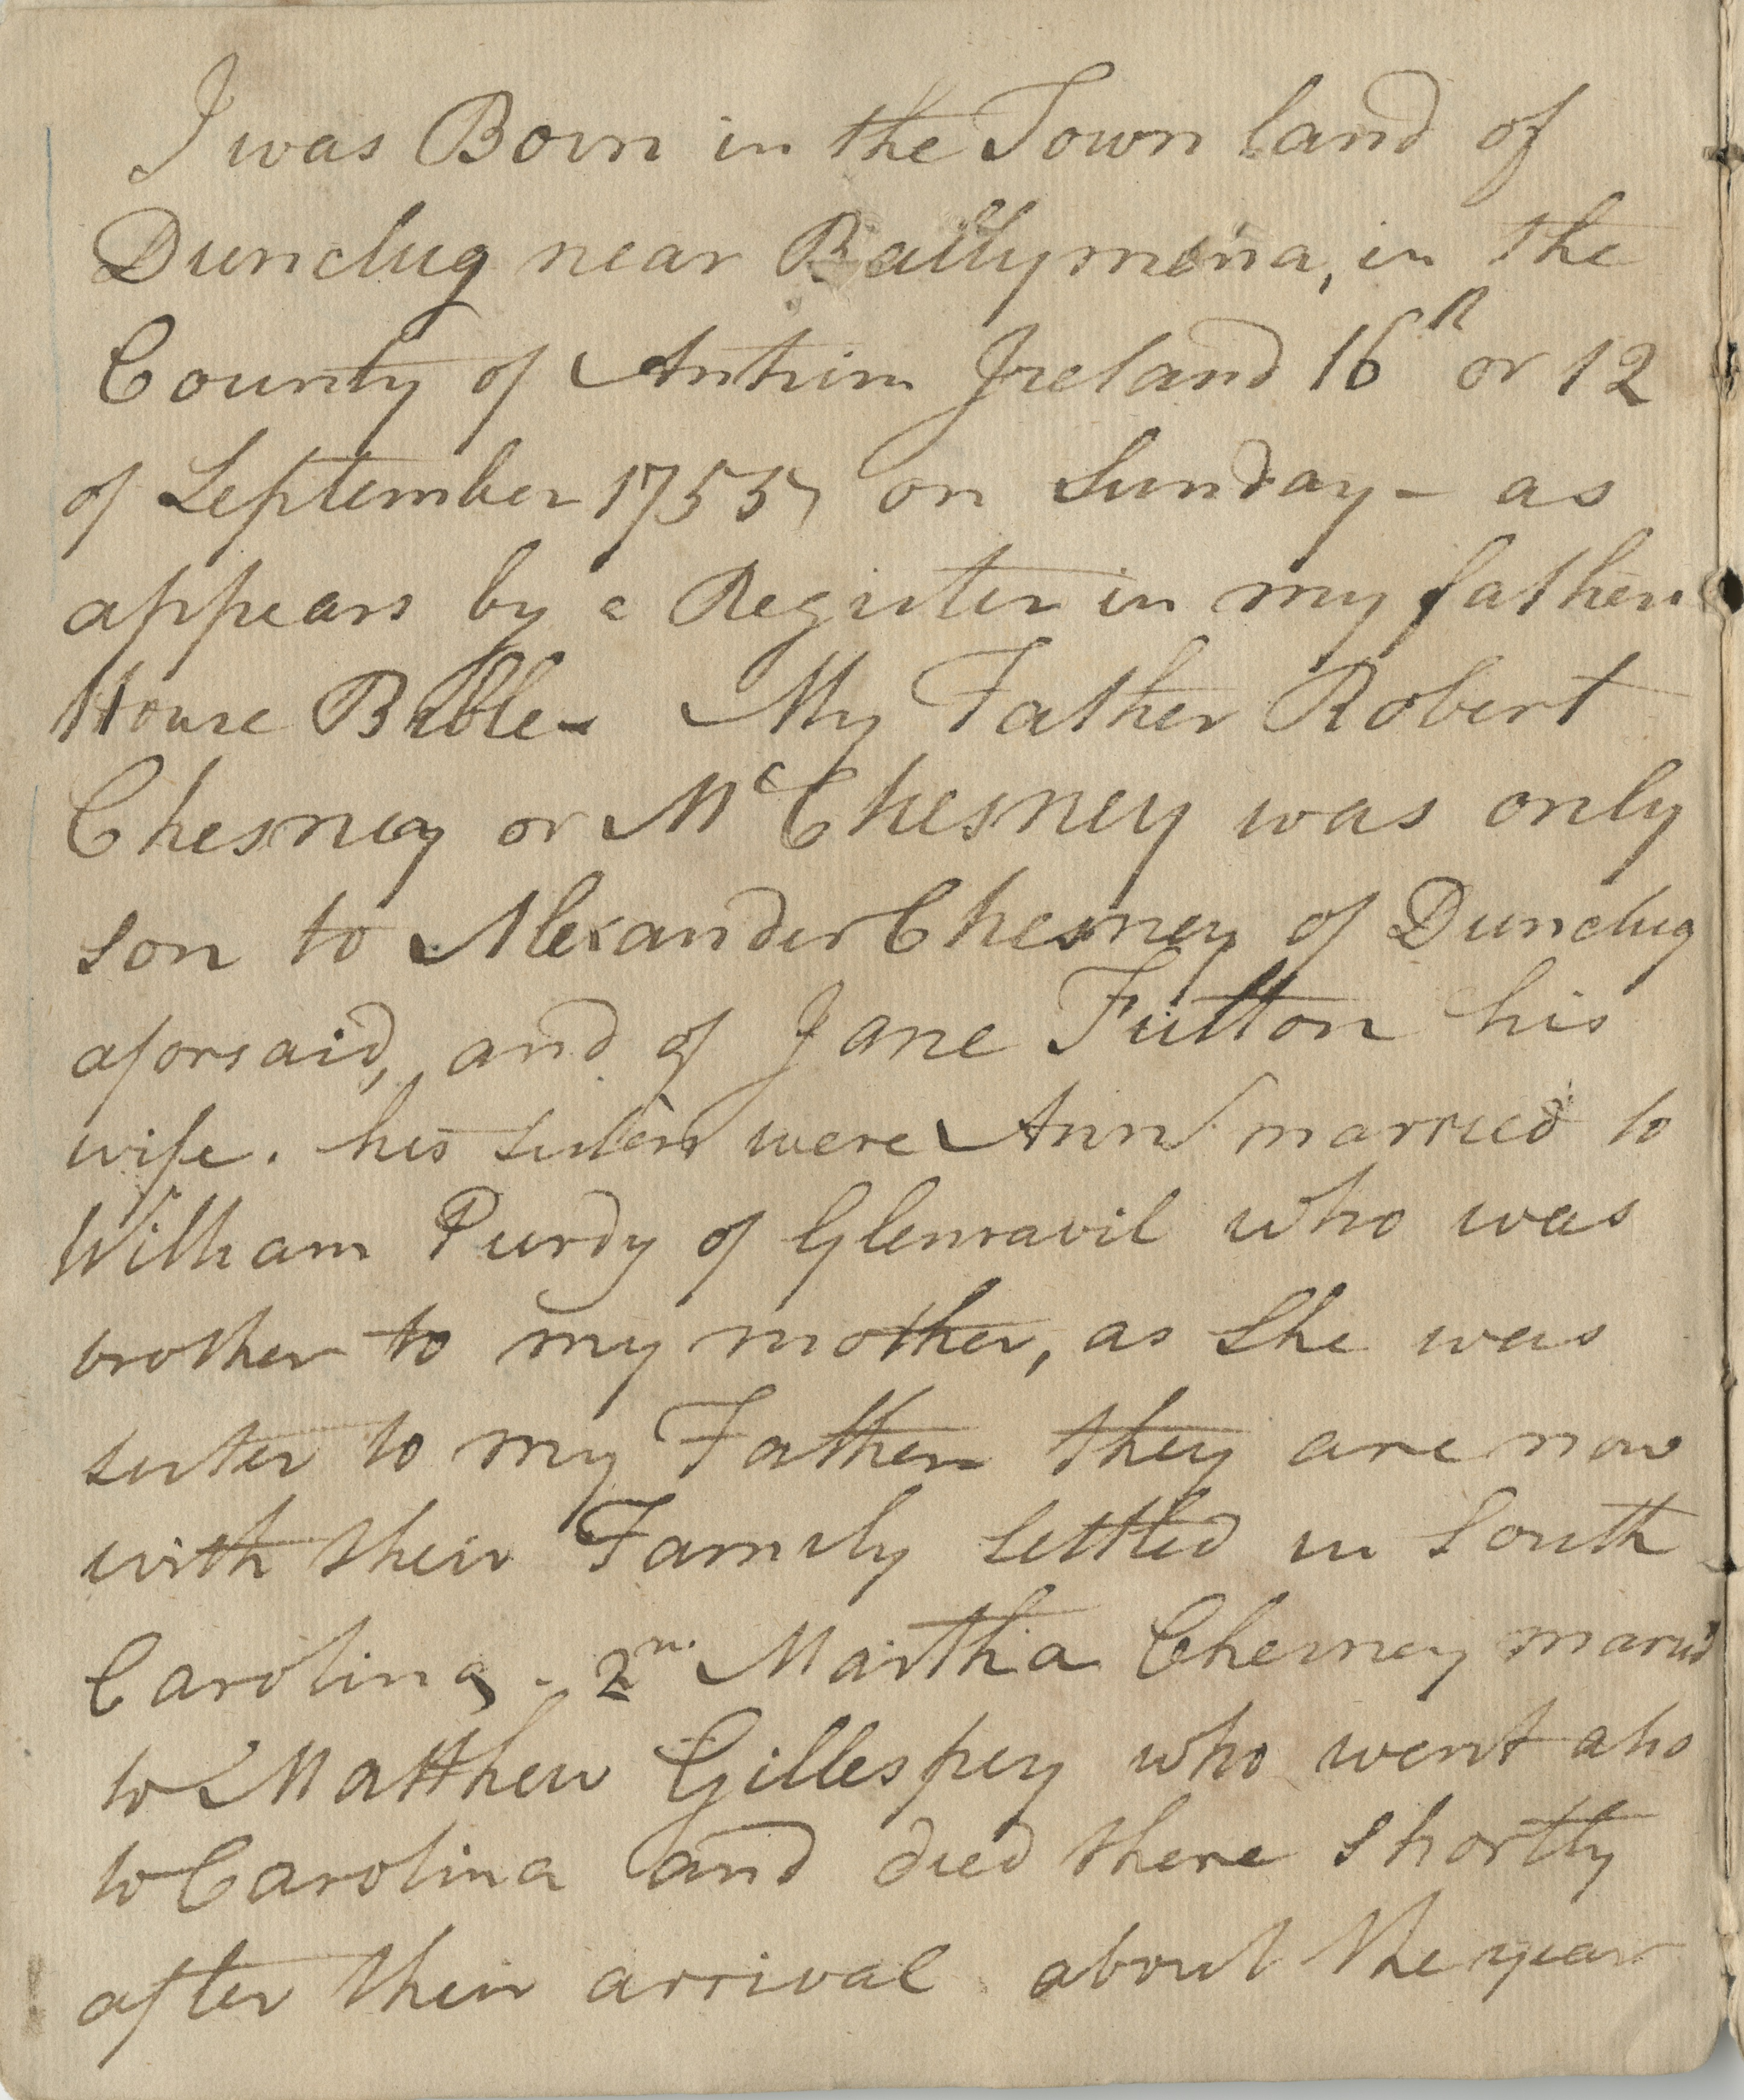 I was Born in the Town land of
Dunclug near Ballymena, in the
County of Antrim Ireland 16th or 12
of September 1755, on Sunday - as
appears by a Register in my fathers
House Bible - My Father Robert
Chesney or McChesney was only
son to Alexander Chesney of Dunclug
aforsaid, and of Jane Fulton his
wife. his sisters were Ann married to
William Purdy of Glenravil who was
brother to my mother, as she was
sister to my Father they are now
with their Family settled in South
Carolina - 2n. Martha Chesney maried
to Matthew Gillespey who went also
to Carolina and died there shortly
after their arrival about the year